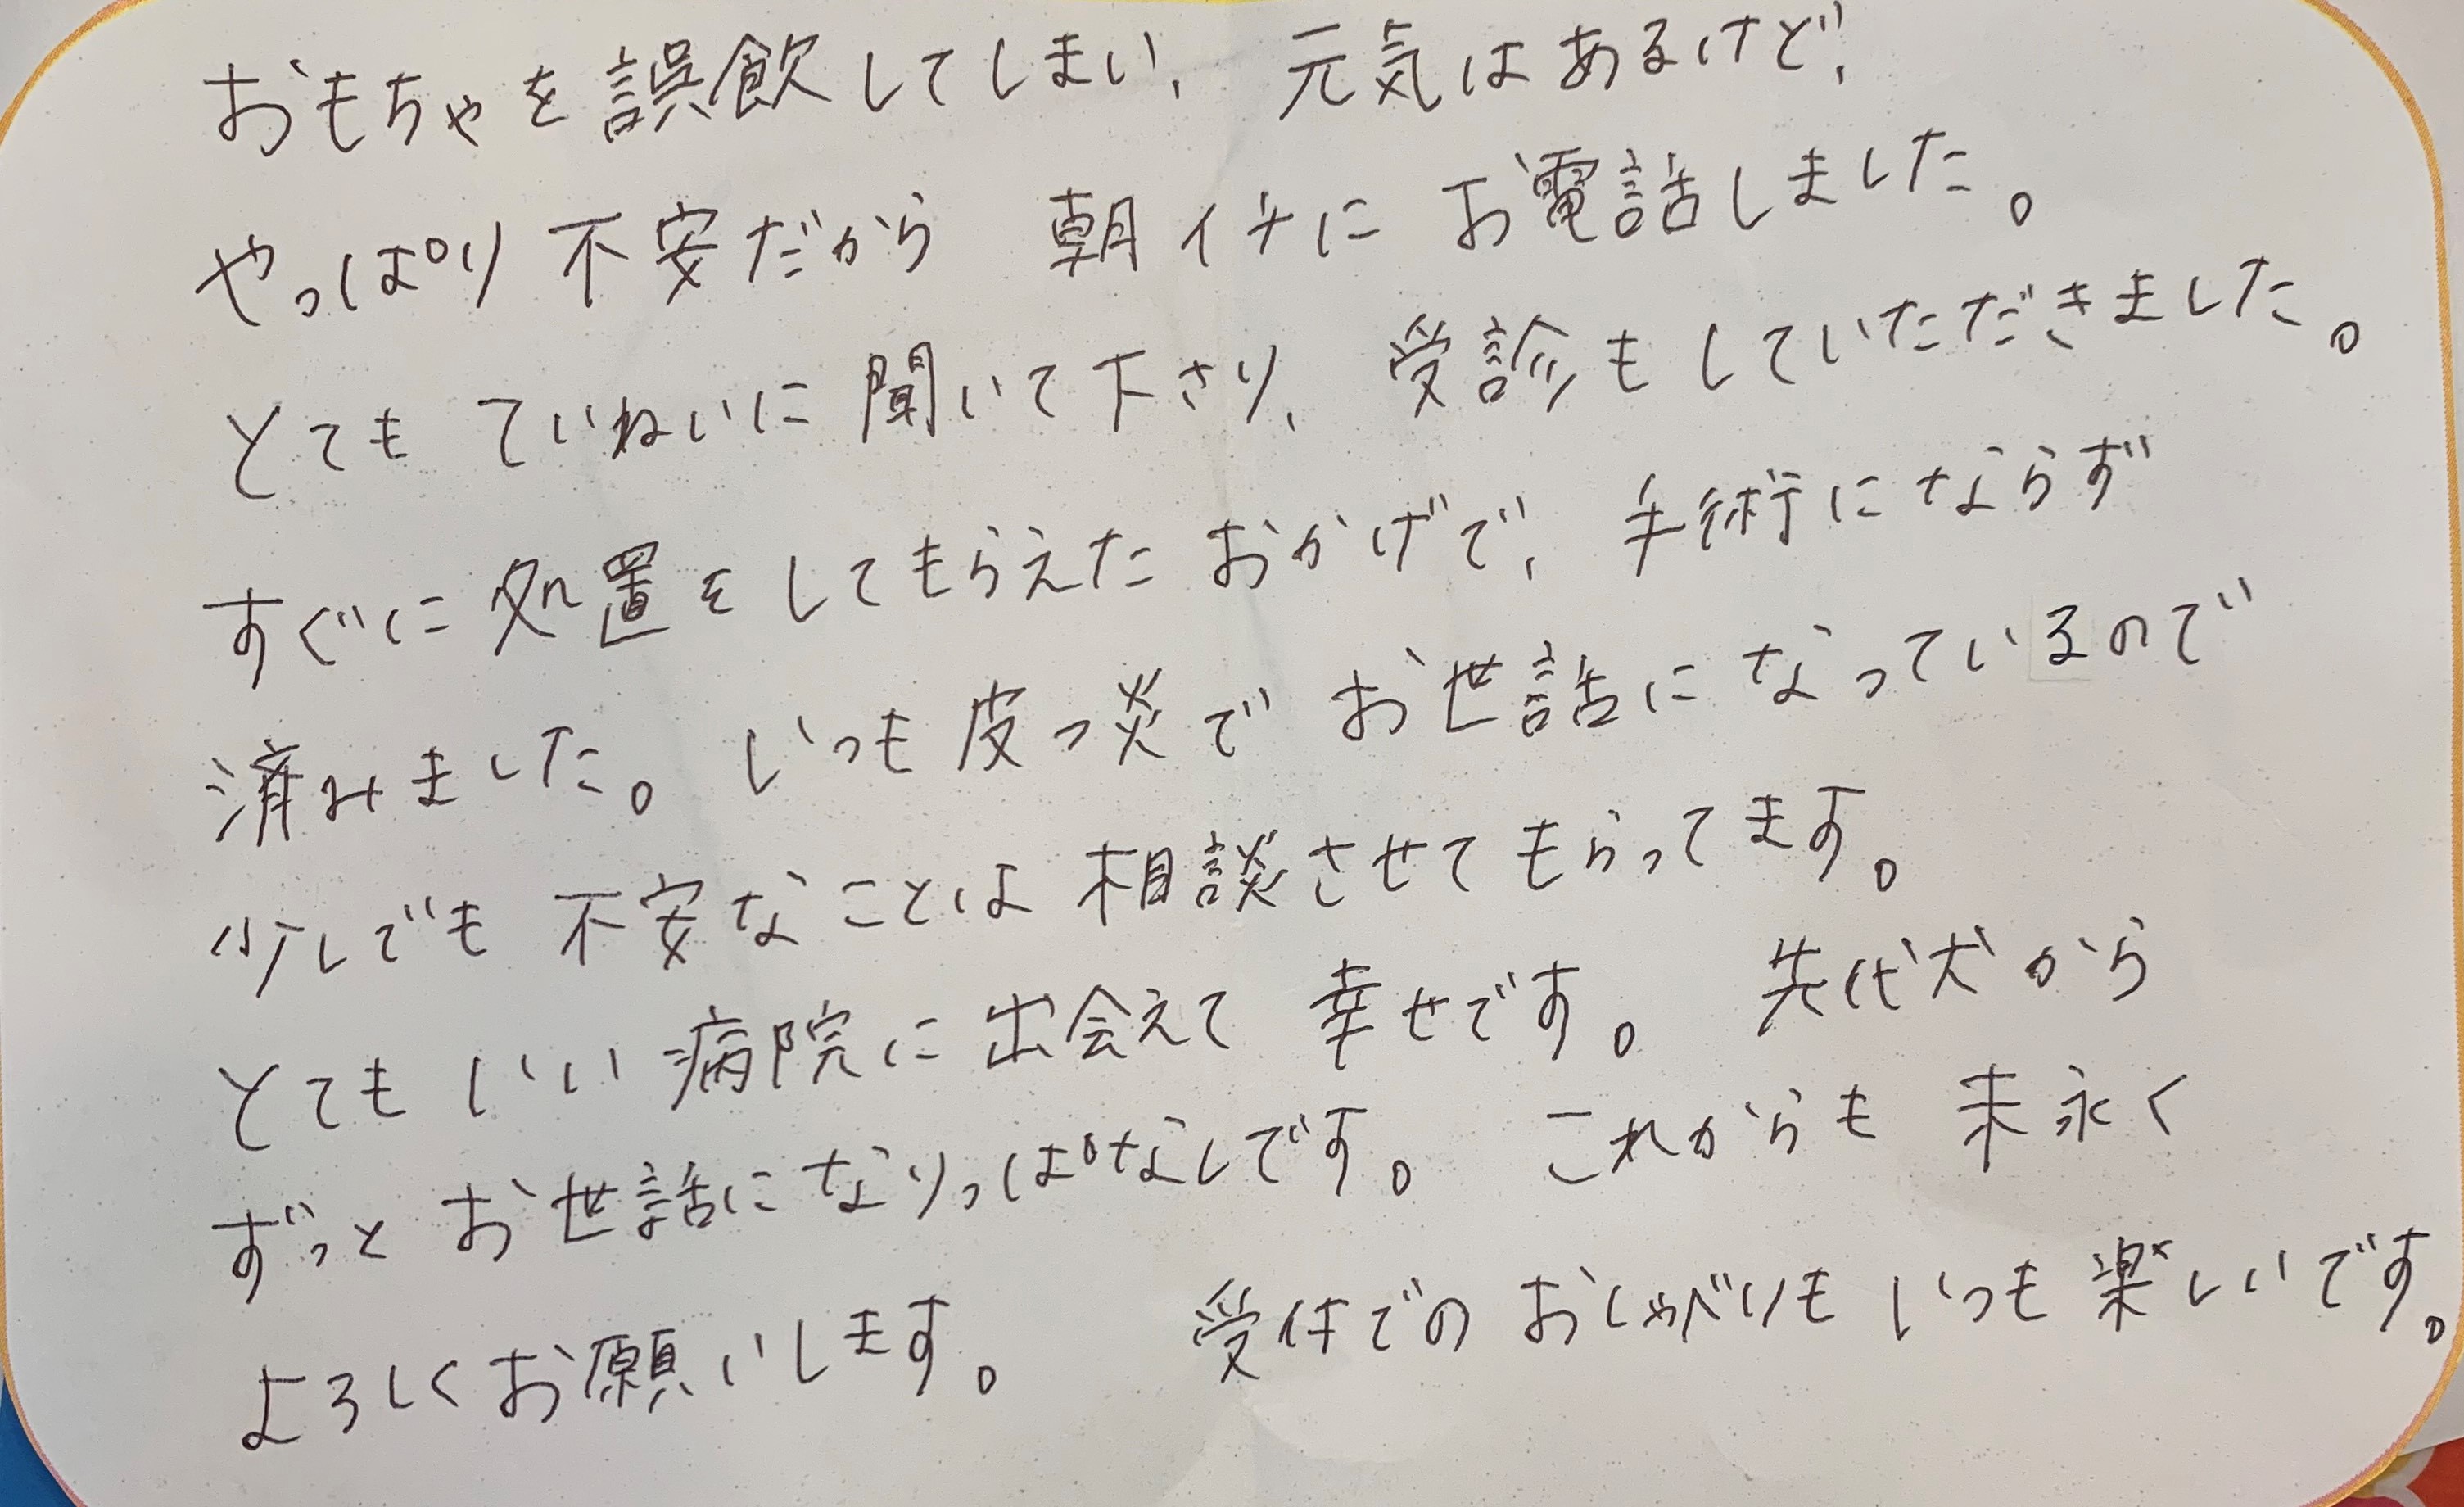 おもちゃを誤飲してしまい、元気はあるけど、
やっぱり不安だから 朝イチに お電話しました。
とても ていねいに 聞いて下さり、受診もしていただきました。
すぐに処置をしてもらえた おかげで、手術にならず
済みました。いつも皮フ炎で お世話になっているので
少しでも 不安なことは 相談させてもらってます。
とても いい病院に出会えて 幸せです。先代犬から
ずっと お世話になりっぱなしです。これからも 末永く
よろしくお願いします。受付での おしゃべりも いつも 楽しいです。